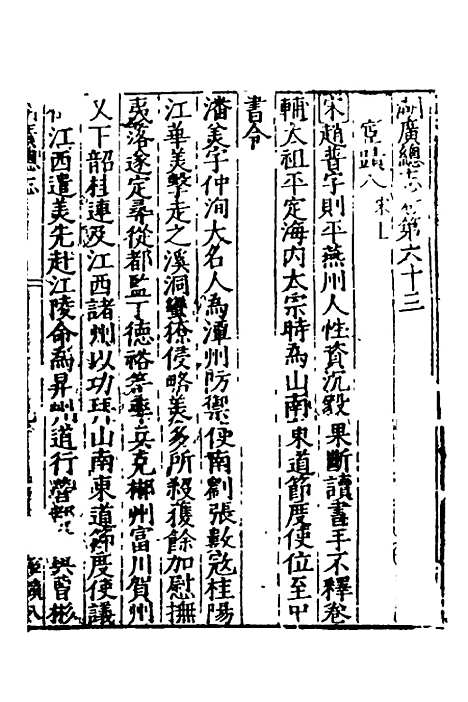 湖廣總志卷第六十三
宦蹟八 宋上
宋趙普字則平燕州人性資沉毅果斷讀書手不釋卷
輔太祖平定海內太宗時為山南東道節度使位至中
書令
潘美字仲洵大名人為潭州防禦使南劉張數寇桂陽
江華美擊走之溪洞蠻獠侵略美多所殺獲餘加慰撫
夷落遂定尋從都監丁德裕等率兵克郴州富川賀州
又下韶桂連及江西諸州以功拜山南東道節度使議
江西遣美先赴江陵命為昇州道行營都 與曹彬
湖廣總志
宦蹟八